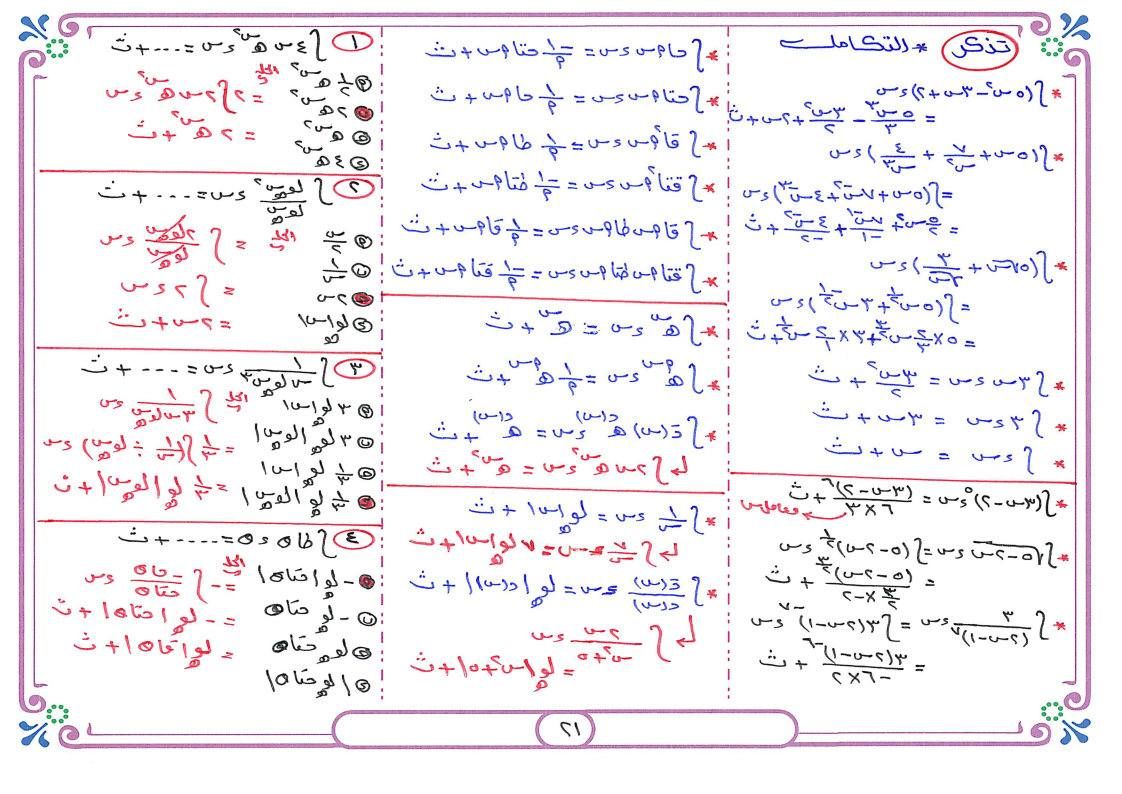 تذكر * التكامل
* ∫(٥س² − ٣س + ٢)ءس
= ٥س³/٣ − ٣س²/٢ + ٢س + ث
* ∫(٥س + ٧/س² + ٤/س³)ءس
= ∫(٥س + ٧س⁻² + ٤س⁻³)ءس
= ٥/٢ س² + ٧س⁻¹/−١ + ٤س⁻²/−٢ + ث
* ∫(٥√س + ٣/√س)ءس
= ∫(٥س^½ + ٣س^−½)ءس
= ٥×٢/٣ س^٣/٢ + ٣×٢/١ س^½ + ث
* ∫٣س ءس = ٣س²/٢ + ث
* ∫٣ ءس = ٣س + ث
* ∫ءس = س + ث
* ∫(٣س−٢)⁵ ءس = (٣س−٢)⁶/٣×٦ + ث
معامل س
* ∫√(٥−٢س) ءس = ∫(٥−٢س)^½ ءس
= (٥−٢س)^٣/٢ / −٢×٣/٢ + ث
* ∫٣/(٢س−١)⁷ ءس = ∫٣(٢س−١)⁻⁷ ءس
= ٣(٢س−١)⁻⁶/−٦×٢ + ث
* ∫حا م س ءس = −١/م حتا م س + ث
* ∫حتا م س ءس = ١/م حا م س + ث
* ∫قا² م س ءس = ١/م طا م س + ث
* ∫قتا² م س ءس = −١/م طتا م س + ث
* ∫قا م س طا م س ءس = ١/م قا م س + ث
* ∫قتا م س طتا م س ءس = −١/م قتا م س + ث
* ∫هـ^س ءس = هـ^س + ث
* ∫هـ^م س ءس = ١/م هـ^م س + ث
* ∫دَ(س) هـ^د(س) ءس = هـ^د(س) + ث
∫٢س هـ^س² ءس = هـ^س² + ث
* ∫١/س ءس = لو هـ |س| + ث
∫٧/س ءس = ٧ لو هـ |س| + ث
* ∫دَ(س)/د(س) ءس = لو هـ |د(س)| + ث
∫٢س/س²+٥ ءس
= لو هـ |س²+٥| + ث
١ ∫٤س هـ^س² ءس = ... + ث
أ ١/٢ هـ^س²
ب ٢هـ^س²
ج هـ^س²
د ٤هـ^س²
الحل = ٢∫٢س هـ^س² ءس
= ٢ هـ^س² + ث
٢ ∫لو هـ س²/لو هـ س ءس = ... + ث
أ س/٢
ب ٢/س
ج ٢س
د لو هـ |س|
الحل = ∫٢لو هـ س/لو هـ س ءس
= ∫٢ ءس
= ٢س + ث
٣ ∫١/س لو هـ س³ ءس = ... + ث
أ ٣ لو هـ |س|
ب ٣ لو هـ |لو هـ س|
ج ١/٣ لو هـ |س|
د ١/٣ لو هـ |لو هـ س|
الحل ∫١/٣س لو هـ س ءس
= ١/٣∫(١/س ÷ لو هـ س) ءس
= ١/٣ لو هـ |لو هـ س| + ث
٤ ∫طاه ءه = .... + ث
أ −لو هـ |حتاه|
ب −لو هـ حتاه
ج لو هـ حتاه
د |لو هـ حتاه|
الحل = −∫−حاه/حتاه ءس
= −لو هـ |حتاه| + ث
= لو هـ |قاه| + ث
٢١